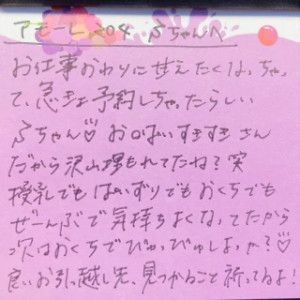 アモーレ204 ろちゃんへ
お仕事おわりに甘えたくなっちゃっ
て、急きょ予約しちゃったらしい
ろちゃん♡ お〇ぱいすきすき さん
だから沢山埋もれてたね？ 実
授乳でも ぱいずりでも おくちでも
ぜーんぶで気持ちよくなってたから
次はおくちでびゅっびゅしよっか？♡
良いお引っ越し先、見つかること祈ってるよ！